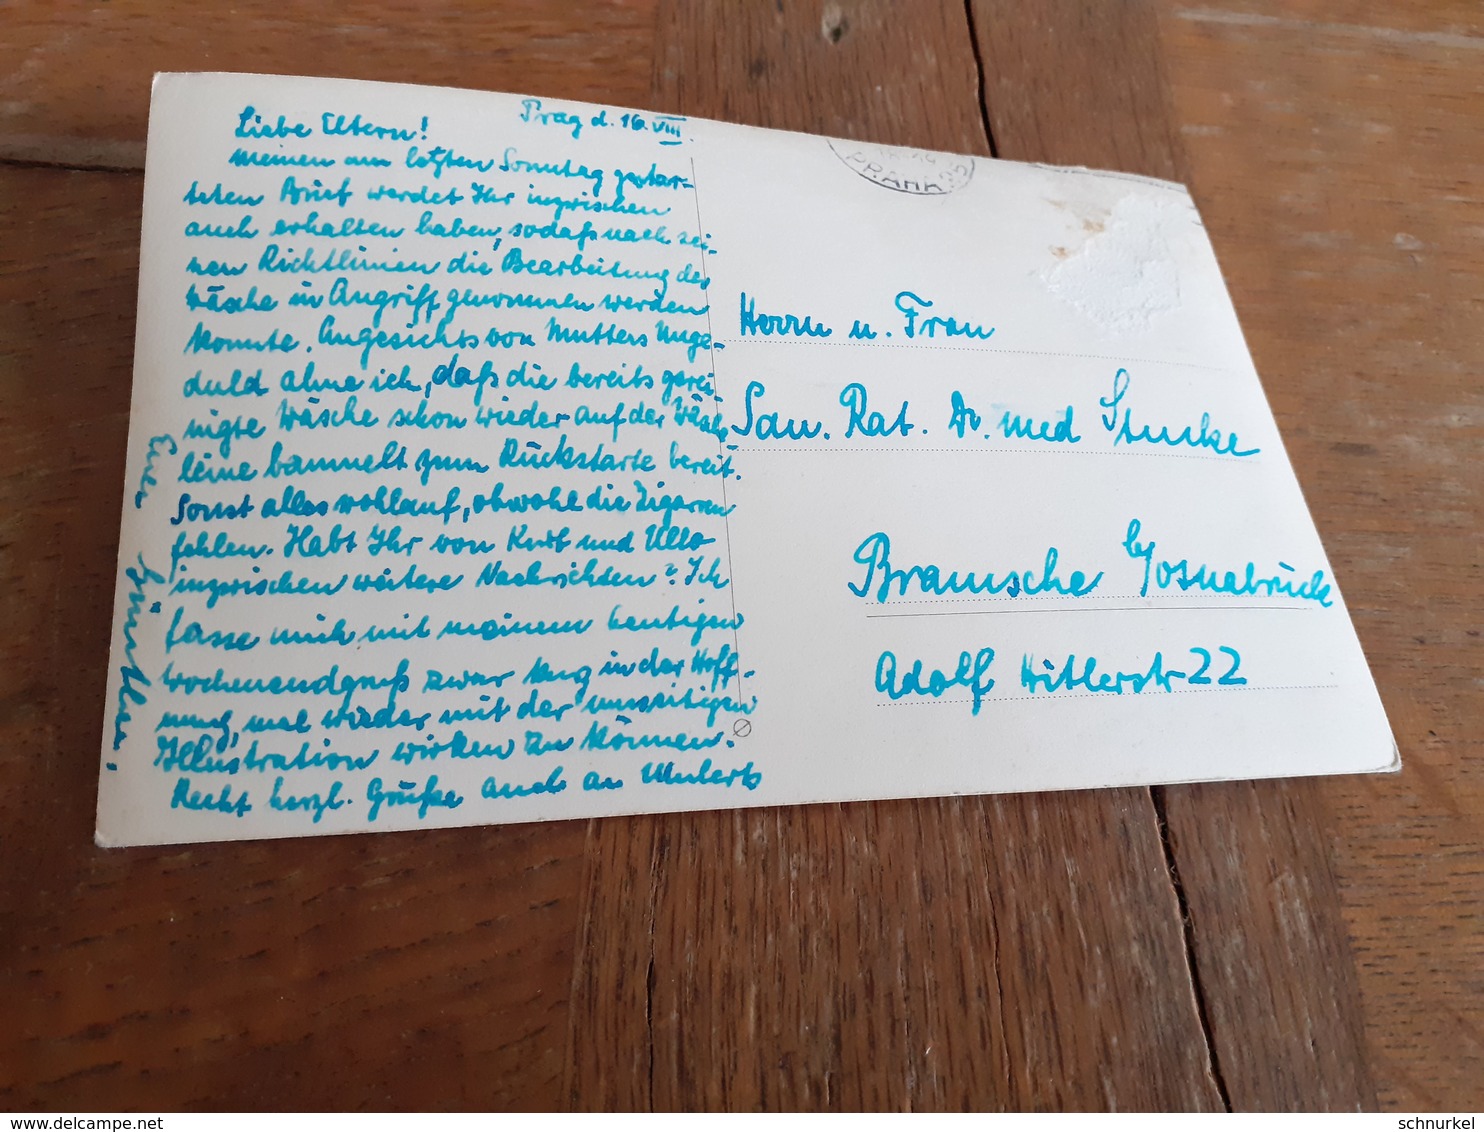 Prag d. 16. VIII.
Liebe Eltern!
Meinen am letzten Sonntag gestar-
teten Brief werdet Ihr inzwischen
auch erhalten haben, sodaß nach sei-
nen Richtlinien die Bearbeitung der
Wäsche in Angriff genommen werden
konnte. Angesichts von Mutters Unge-
duld ahne ich, daß die bereits gerei-
nigte Wäsche schon wieder auf der Wäsche
leine bammelt zum Rückstarte bereit.
Sonst alles wohlauf, obwohl die Zigarren
fehlen. Habt Ihr von Kurt und Ullo
inzwischen weitere Nachrichten? Ich
fasse mich mit meinem heutigen
Wochenendgruß zwar kurz in der Hoff-
nung, mal wieder mit der umseitigen
Illustration wirken zu können.
Recht herzl. Grüße auch an
Euer
PRAHA
Herrn u. Frau
San. Rat. Dr. med
Bramsche b/Osnabrück
Adolf Hitlerstr 22
delcampe.net
schnurkel